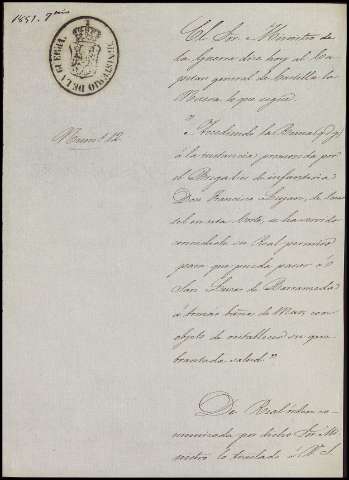 1851. 7
MINISTERIO DE LA GUERRA.
El Sor. Ministro de
la Guerra dice hoy al Ca-
pitan general de Castilla la
Nueva lo que sigue.
Num.º 12.
"Accediendo la Reina
á la instancia promovida por
el Brigadier de infanteria
Don Francisco de
en esta Corte, se ha servido
concederle su Real permiso
para que pueda pasar á
San Lucar de Barrameda
á tomar baños de Mar, con
objeto de restablecer su que-
brantada salud".
De Real orden co-
municada por dicho Sor. Mi-
nistro lo traslado á V. S.